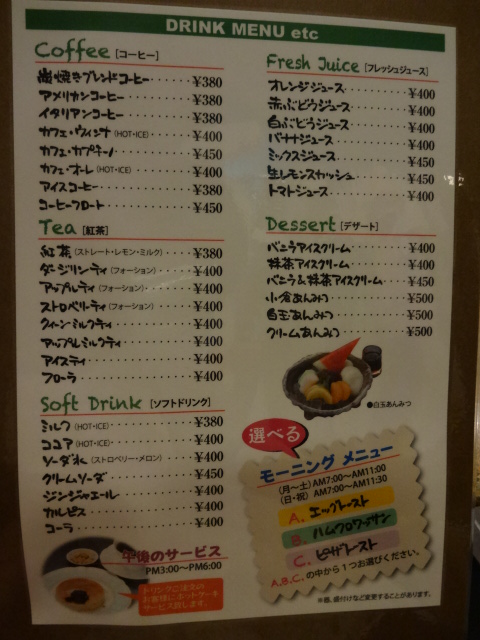 DRINK MENU etc
Coffee [コーヒー]
炭焼きブレンドコーヒー······¥380
アメリカンコーヒー·········¥380
イタリアンコーヒー·········¥380
カフェ・ウィンナ(HOT・ICE)·······¥400
カフェ・カプチーノ·········¥450
カフェ・オーレ(HOT・ICE)········¥400
アイスコーヒー············¥380
コーヒーフロート···········¥450
Tea [紅茶]
紅茶(ストレート・レモン・ミルク)·····¥380
ダージリンティ(フォーション)······¥400
アップルティ(フォーション)·······¥400
ストロベリーティ(フォーション)·····¥400
クィーンミルクティ·········¥400
アップルミルクティ·········¥400
アイスティ··············¥400
フローラ···············¥400
Soft Drink [ソフトドリンク]
ミルク(HOT・ICE)············¥380
ココア(HOT・ICE)···········¥400
ソーダ水(ストロベリー・メロン)·····¥400
クリームソーダ···········¥450
ジンジャエール···········¥400
カルピス··············¥400
コーラ···············¥400
午後のサービス
PM3:00〜PM6:00
ドリンクご注文の
お客様にホットケーキ
サービス致します。
Fresh Juice [フレッシュジュース]
オレンジジュース·········¥400
赤ぶどうジュース·········¥400
白ぶどうジュース·········¥400
バナナジュース··········¥400
ミックスジュース·········¥450
生レモンスカッシュ········¥450
トマトジュース··········¥400
Dessert [デザート]
バニラアイスクリーム·······¥400
抹茶アイスクリーム········¥400
バニラ&抹茶アイスクリーム····¥450
小倉あんみつ···········¥500
白玉あんみつ···········¥500
クリームあんみつ·········¥500
●白玉あんみつ
選べる
モーニング メニュー
(月〜土) AM7:00〜AM11:00
(日・祝) AM7:00〜AM11:30
A. エッグトースト
B. ハムクロワッサン
C. ピザトースト
A.B.C.の中から1つお選びください。
※器、盛付けなど変更することがあります。